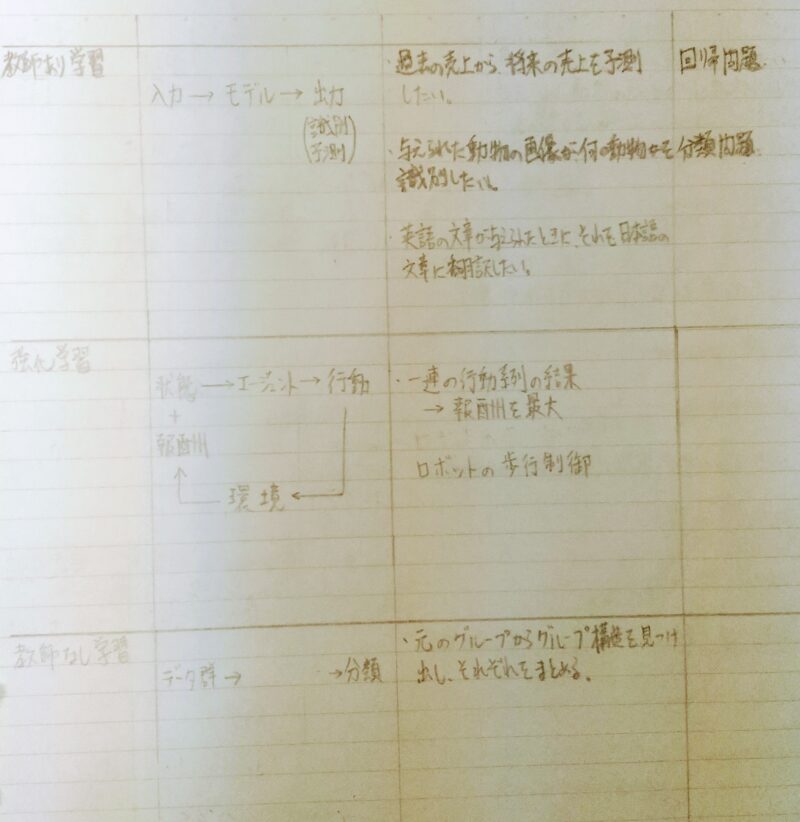 教師あり学習
入力→モデル→出力
(識別
予測)
・過去の売上から、将来の売上を予測
したい。
回帰問題
・与えられた動物の画像が何の動物かを
識別したい。
分類問題
・英語の文章が与えられたときに、それを日本語の
文章に翻訳したい。
強化学習
状態→エージェント→行動
+
報酬州
環境←
・一連の行動系列の結果
→報酬を最大
ロボットの歩行制御
教師なし学習
データ群→ →分類
・元のグループからグループ構造を見つけ
出し、それぞれをまとめる。